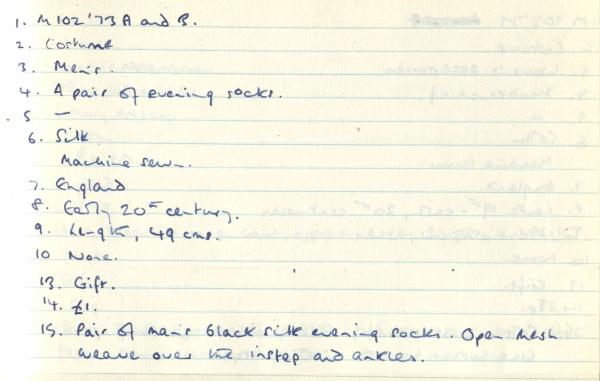 1. M102'73 A and B.
2. Costume
3. Men's.
4. A pair of evening socks.
5 —
6. Silk.
Machine sewn.
7. England
8. Early 20th century.
9. Length, 49 cms.
10 None.
13. Gift.
14. £1.
15. Pair of man's black silk evening socks. Open mesh
weave over the instep and ankles.